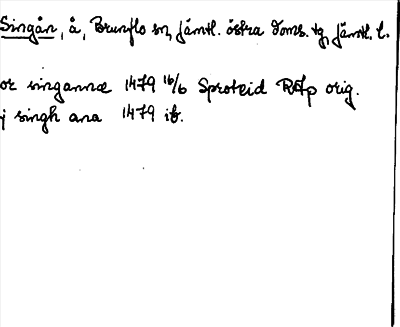 Singån, å, Brunflo sn, Jämtl. östra doms. tg, Jämtl. l.
or singannæ 1479 16/6 Sproteid RAp orig.
j singh ana 1479 ib.